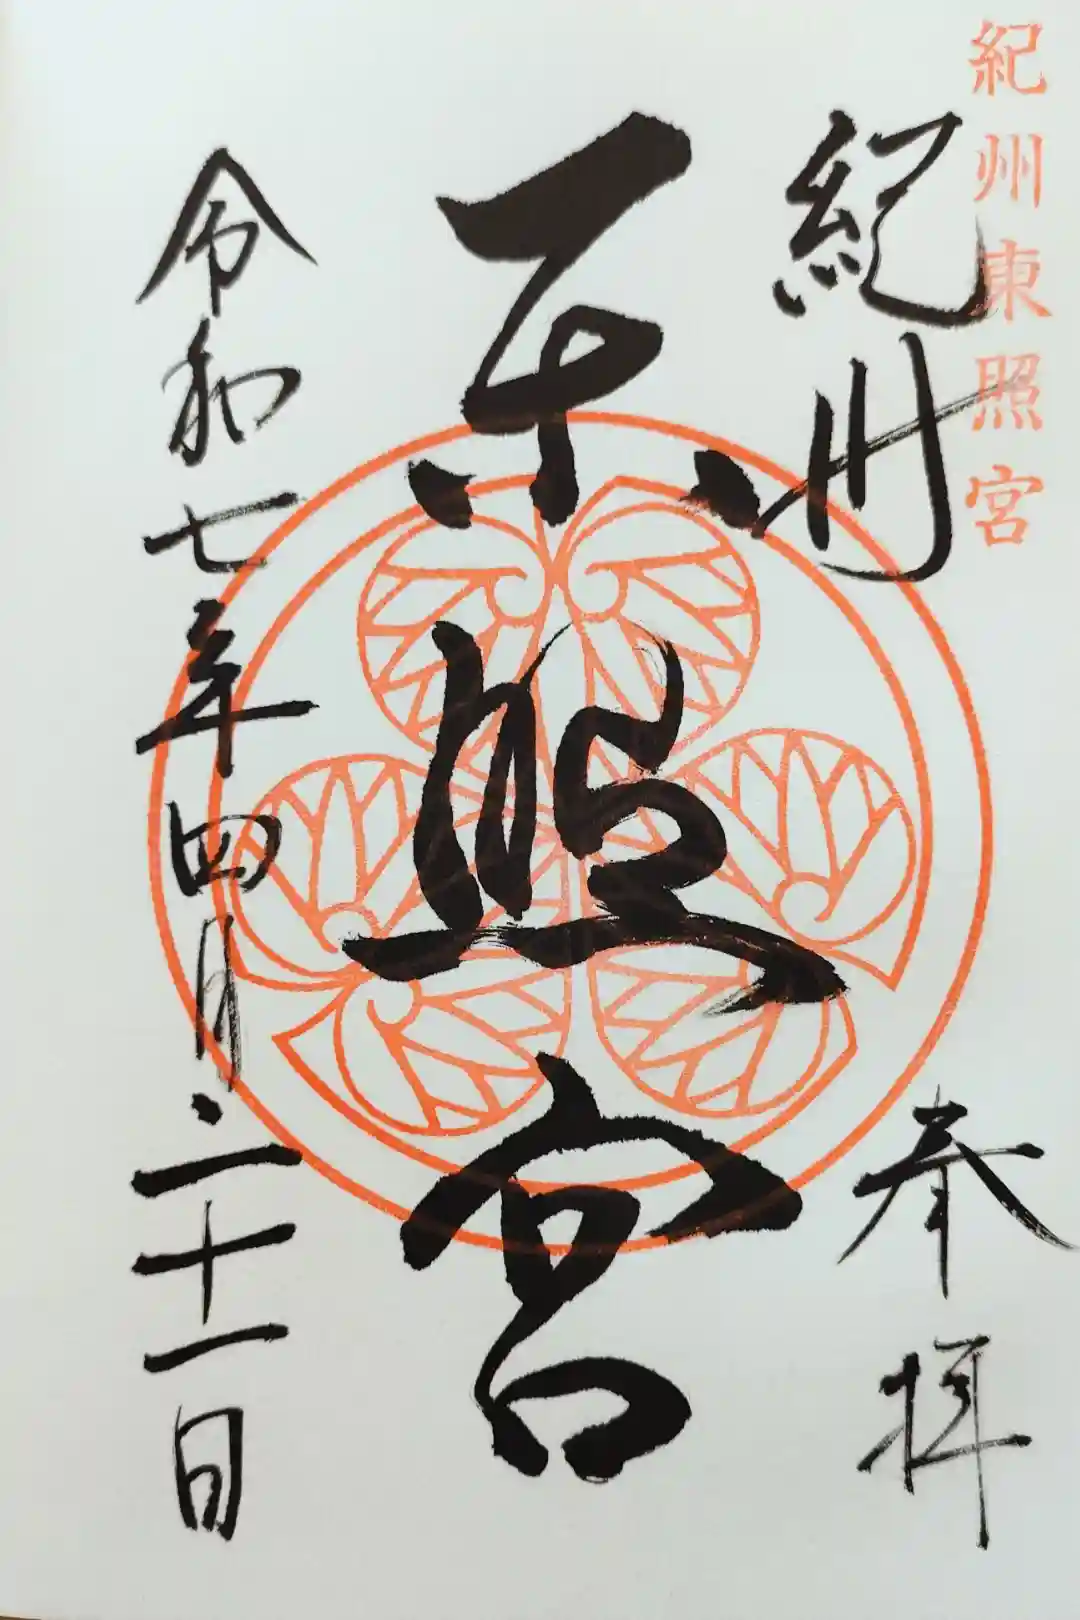 紀州東照宮
紀州
奉拝
東照宮
令和七年四月二十一日